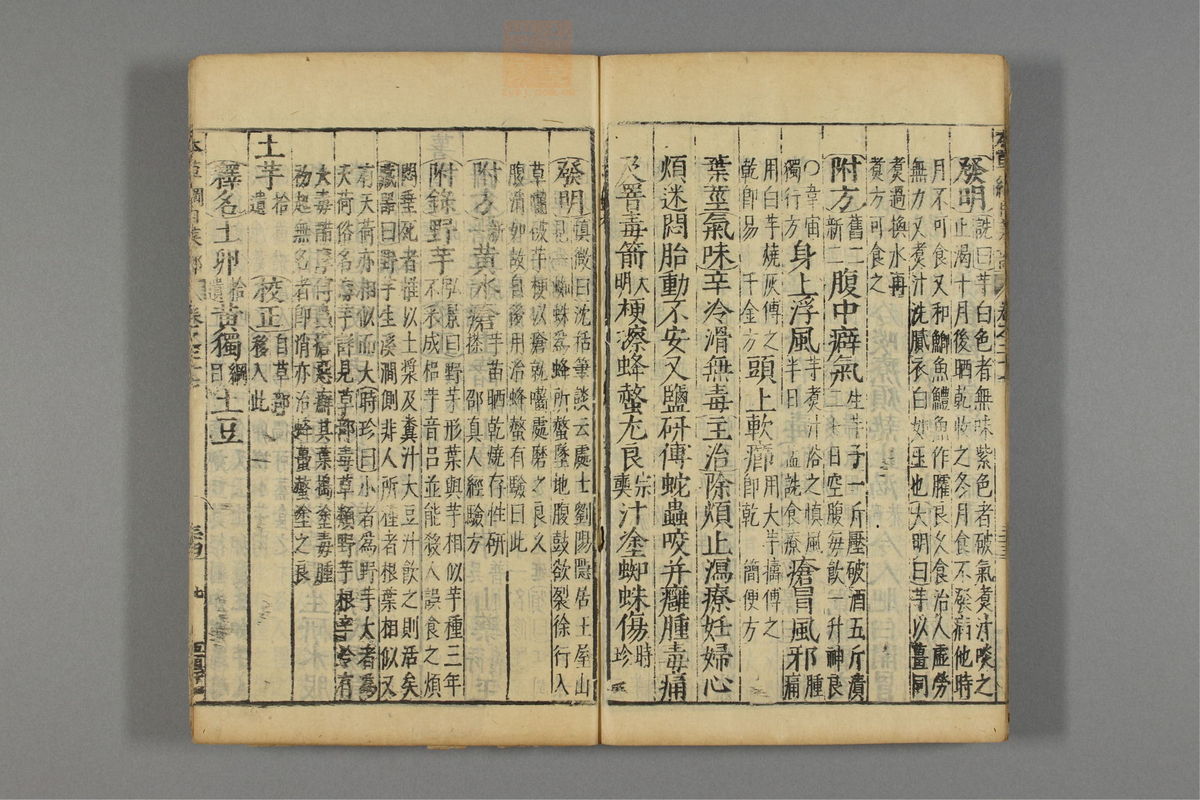 發明詵曰芋白色者無味紫色者破氣煑汁啖之
止渴十月後晒乾收之冬月食不發病他時
月不可食又和鯽魚鱧魚作臛良久食治人虛勞
無力又煑汁洗膩衣白如玉也大明曰芋以薑同
煑過換水再
煑方可食之
附方舊二新二腹中癖氣生芋子一斤壓破酒五斤漬
二七日空腹每飲一升神良
○韋宙獨行方身上浮風芋煑汁浴之慎風半日孟詵食療瘡冒風邪腫痛
用白芋燒灰傅之乾即易千金方頭上軟癤用大芋擣傅之即乾簡便方
葉莖氣味辛冷滑無毒主治除煩止瀉療妊婦心
煩迷悶胎動不安又鹽研傅蛇蟲咬并癰腫毒痛
及罯毒箭大明梗擦蜂螫尤良宗奭汁塗蜘蛛傷時珍
發明慎微曰沈括筆談云處士劉陽隱居王屋山
見一蜘蛛爲蜂所螫墜地腹鼓欲裂徐行入
草嚙破芋梗以瘡就嚙處磨之良久
腹消如故自後用治蜂螫有驗由此
附方新一黃水瘡芋苗晒乾燒存性研搽邵真人經驗方
附錄野芋弘景曰野芋形葉與芋相似芋種三年
不采成梠芋音呂並能殺人誤食之煩
悶垂死者惟以土漿及糞汁大豆汁飲之則活矣
藏器曰野芋生溪澗側非人所種者根葉相似又
有天荷亦相似而大時珍曰小者爲野芋大者爲
天荷俗名海芋詳見草部毒草類野芋根辛冷有
大毒醋摩傅蟲瘡惡癬其葉擣塗毒腫
初起無名者即消亦治蜂蠆螫塗之良
土芋拾遺校正自草部移入此
釋名土卵拾遺黃獨綱目土豆